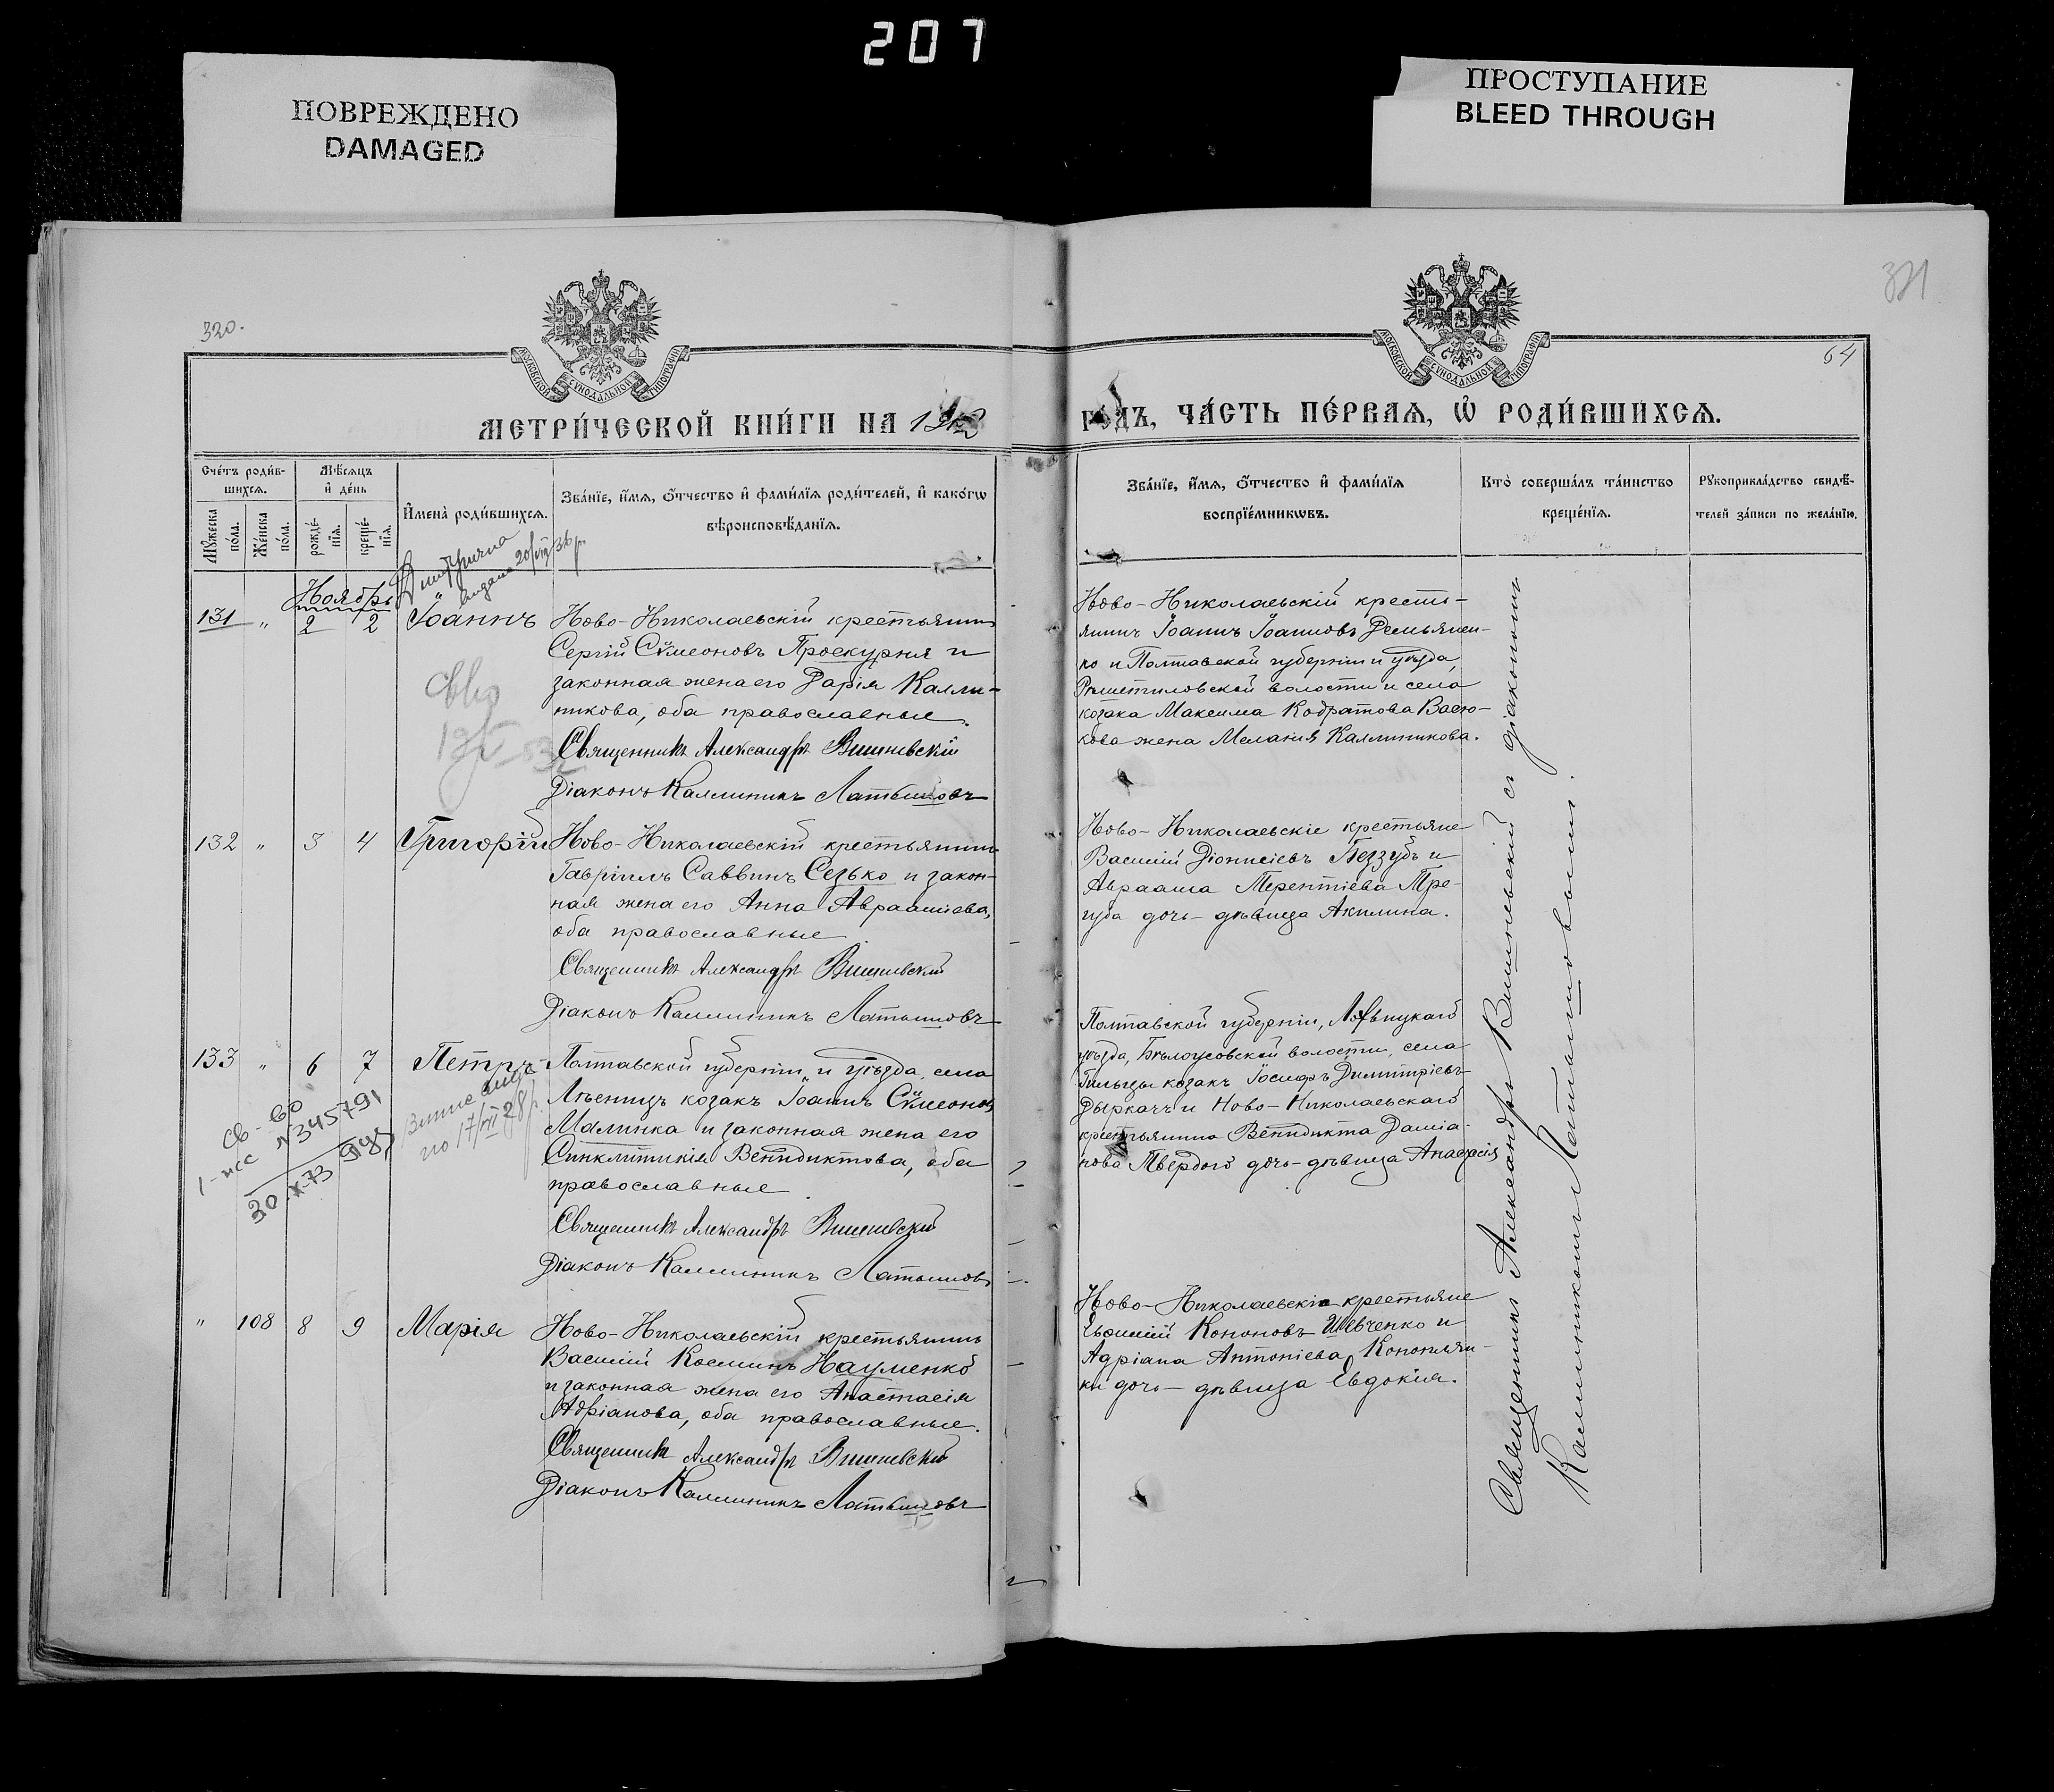 207
ПОВРЕЖДЕНО
DAMAGED
ПРОСТУПАНИЕ
BLEED THROUGH
320.
321
64
МОСКОВСКОЙ СѴНОДАЛЬНОЙ ТИПОГРАФІИ
МОСКОВСКОЙ СѴНОДАЛЬНОЙ ТИПОГРАФІИ
МЕТРИ́ЧЕСКОЙ КНИ́ГИ НА
ГО́ДЪ, ЧА́СТЬ ПЕ́РВАѦ, Ѽ РОДИ́ВШИХСѦ.
Сче́тъ роди́в-
шихсѧ.
Мꙋ́жеска
по́ла.
Же́нска
по́ла.
Мѣ́сѧцъ
и҆ де́нь
рожде́-
нїѧ.
креще́-
нїѧ.
И҆мена̀ роди́вшихсѧ.
Зва́нїе, и҆́мѧ, ѻ҆́тчество и҆ фами́лїѧ роди́телей, и҆ како́гѡ
вѣроисповѣ́данїѧ.
Зва́нїе, и҆́мѧ, ѻ҆́тчество и҆ фами́лїѧ
воспрїе́мникѡвъ.
Кто̀ соверша́лъ та́инство
креще́нїѧ.
Рꙋкоприкла́дство свидѣ́-
телей за́писи по жела́нїю.
Ноябрь
131 " 2 2 Іоаннъ
видана 20/VIII 36 р.
Ново-Николаевскій крестьянинъ
Сергій Сѵмеоновъ Проскурня и
законная жена его Дарія Калли-
никова, оба православные.
Священникъ Александръ Вишневскій
Діаконъ Каллиникъ Латышовъ
Ново-Николаевскій кресть-
янинъ Іоаннъ Іоанновъ Демьянен-
ко и Полтавской губерніи и уѣзда,
Рѣшетиловской волости и села
козака Максима Кодратова Васю-
кова жена Меланія Каллиникова.
132 " 3 4 Григорій
Ново-Николаевскій крестьянинъ
Гавріилъ Саввинъ Сезько и закон-
ная жена его Анна Авраамиева,
оба православные
Священникъ Александръ Вишневскій
Діаконъ Каллиникъ Латышовъ
Ново-Николаевскіе крестьяне
Василій Діонисіевъ Беззубъ и
Авраама Терентіева Тре-
губа дочь-дѣвица Акилина.
133 " 6 7 Петръ
Св-во
1-нсс №345791
30.X-73
17/VII 28 р.
Полтавской губерніи и уѣзда, села
козакъ Іоаннъ Сѵмеоновъ
Малинка и законная жена его
Синклитикія Венидиктова, оба
православные
Священникъ Александръ Вишневскій
Діаконъ Каллиникъ Латышовъ
Полтавской губерніи, Лохвицкаго
уѣзда, Бѣлоусовской волости, села
козакъ Іосифъ Димитріевъ
Дыркачъ и Ново-Николаевскаго
крестьянина Венидикта Даміа-
нова Твердого дочь-дѣвица Анастасія
" 108 8 9 Марія
Ново-Николаевскій крестьянинъ
Василій Косминъ Науменко
и законная жена его Анастасія
Адріанова, оба православные.
Священникъ Александръ Вишневскій
Діаконъ Каллиникъ Латышовъ
Ново-Николаевскіе крестьяне
Евфимій Кононовъ Шевченко и
Адріана Антоніева Конопля-
ки дочь-дѣвица Евдокія.
Священникъ Александръ Вишневскій съ діакономъ
Каллиникомъ Латышовымъ.